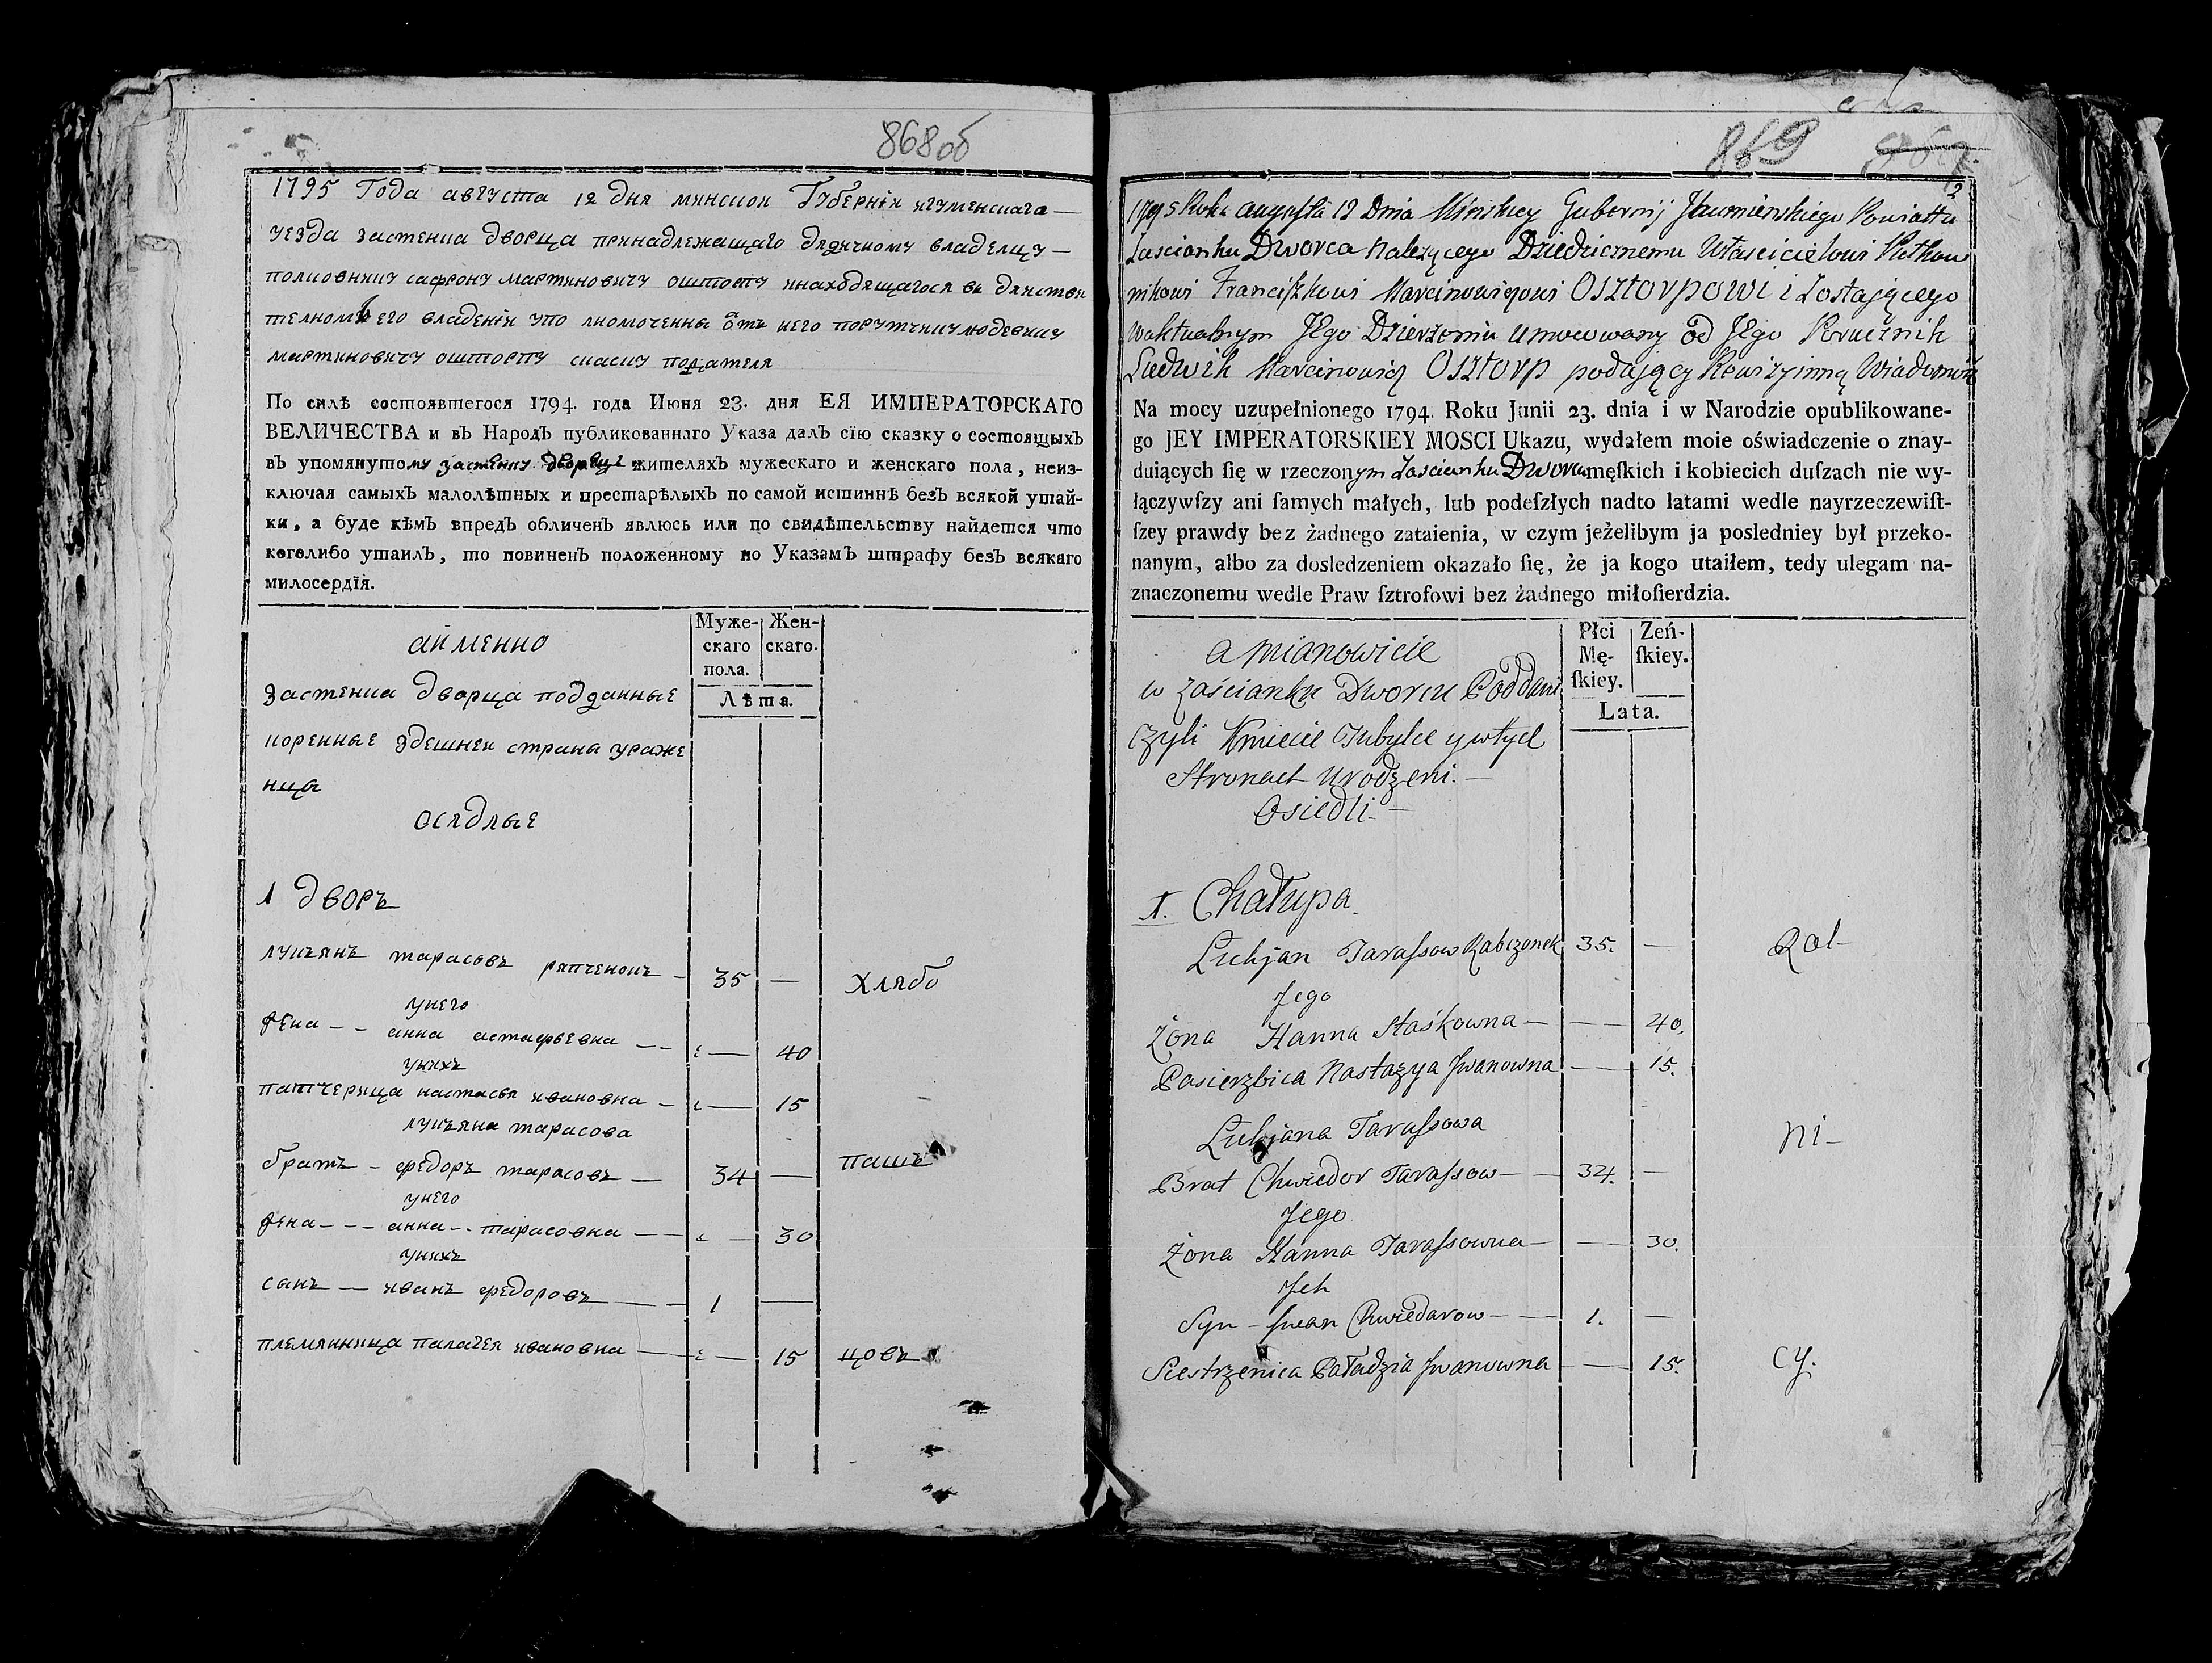 868об
1795 Года августа 12 дня минскои Губерніи игуменскага
уезда застенка дворца принадлежащаго дядичному владелцу
полковнику сафрону мартиновичу ошторпу инаходящагося вь
его владеніи от него поручику людевику
мартиновичу ошторпу
По силѣ состоявшегося 1794. года Июня 23. дня ЕЯ ИМПЕРАТОРСКАГО
ВЕЛИЧЕСТВА и въ Народъ публикованнаго Указа далъ сїю сказку о состоящыхъ
въ упомянутому застенку дворце жителяхъ мужескаго и женскаго пола, неиз-
ключая самыхъ малолѣтныхъ и престарѣлыхъ по самой истиннѣ безъ всякой утай-
ки, а буде кѣмъ впредъ обличенъ явлюсь или по свидѣтельству найдется что
коголибо утаилъ, то повиненъ положенному по Указамъ штрафу безъ всякаго
милосердїя.
аименно
Муже-
скаго
пола.
Жен-
скаго.
Лѣта.
застенка дворца подданные
коренные здешнеи страны ураже
нцы
осядлые
1 дворъ
лукъянъ тарасовъ рапченокъ - 35 — хлябо
унего
жена - - анна астафьевна — — 40
унихъ
патчерица настасья ивановна — — 15
лукъяна тарасова
братъ - федоръ тарасовъ — 34 — пашъ
унего
жена - - - анна - - тарасовна — — 30
унихъ
сынъ — иванъ федоровъ — — 1 —
племянница палагея ивановна — — 15 цовъ
869
2
1795 Roku augusta 12 Dnia Minskiey Gubernij Jhumienskiego Powiattu
Zascianku Dworca Należącego Dziedzicznemu Własicielowi Putkow
nikowi Franciszkowi Marcinowiczowi Osztorpowi i Zostającego
waktualnym Jego Dzierżeniu umocowany od Jego Porucznik
Ludwik Marcinowicz Osztorp podający Rewizyinną Wiadomość
Na mocy uzupełnionego 1794. Roku Junii 23. dnia i w Narodzie opublikowane-
go JEY IMPERATORSKIEY MOSCI Ukazu, wydałem moie oświadczenie o znay-
duiących ſię w rzeczonym Zascianku Dworcu męſkich i kobiecich duſzach nie wy-
łączywſzy ani ſamych małych, lub podeſzłych nadto latami wedle nayrzeczewiſt-
ſzey prawdy bez żadnego zataienia, w czym jeżelibym ja posledniey był przeko-
nanym, albo za dosledzeniem okazało ſię, że ja kogo utaiłem, tedy ulegam na-
znaczonemu wedle Praw ſztrofowi bez żadnego miłoſierdzia.
a mianowicie
Płci
Mę-
ſkiey.
Zeń-
ſkiey.
Lata.
w zaścianku Dworcu Poddani
czyli Kmiecie Tubylce y wtych
Stronach urodzeni. —
Osiedli. —
1. Chałupa.
Lukjan Taraſsow Rabczonek 35. — Rol-
Jego
Żona Hanna Staśkowna — — 40.
Pasierzbica Nastazya Jwanowna — 15.
Lukjana Taraſsowa ni-
Brat Chwiedor Taraſsow — 34. —
Jego
Żona Hanna Taraſsowna — — 30.
Jch
Syn - Jwan Chwiedarow — — 1. —
Siestrzenica Paładzia Jwanowna — 15. cy.